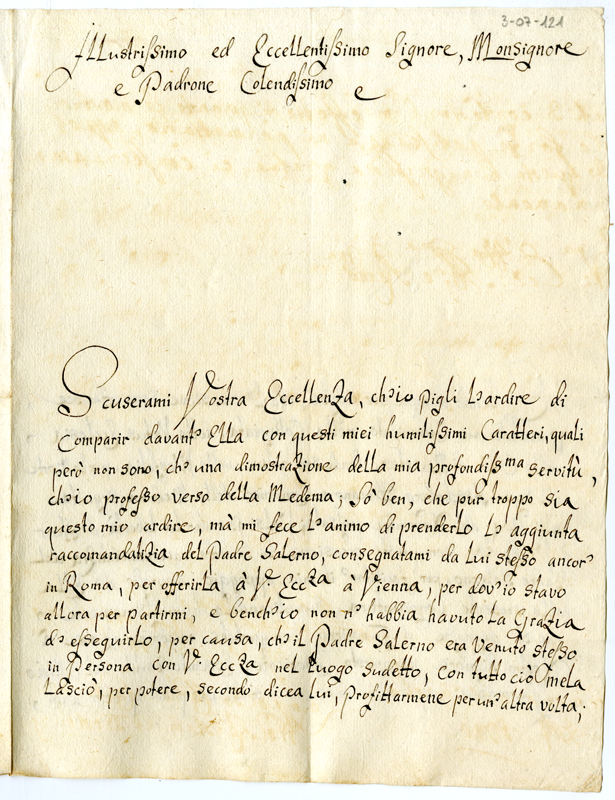 3-07-121
Illustrissimo ed Eccellentissimo Signore, Monsignore
e Padrone Colendissimo e
Scuserami Vostra Eccellenza, ch'io pigli l'ardire di
Comparir davant' Ella con questi miei humilissimi Caratteri, quali
però non sono, ch' una dimostrazione della mia profondiss.ma servitù,
ch'io professo verso della Medema; Sò ben, che pur troppo sia
questo mio ardire, mà mi fece l'animo di prenderlo l'aggiunta
raccomandatizia del Padre Salerno, consegnatami da lui stesso ancor'
in Roma, per offerirla à V. Ecc.za à Vienna, per dov'io stavo
allora per partirmi, e bench'io non n' habbia havuto la Grazia
d'esseguirlo, per causa, ch'il Padre Salerno era Venuto stesso
in Persona con V. Ecc.za nel Luogo sudetto, con tutto ciò mela
Lasciò, per potere, secondo dicea lui, profittarmene per un' altra volta;